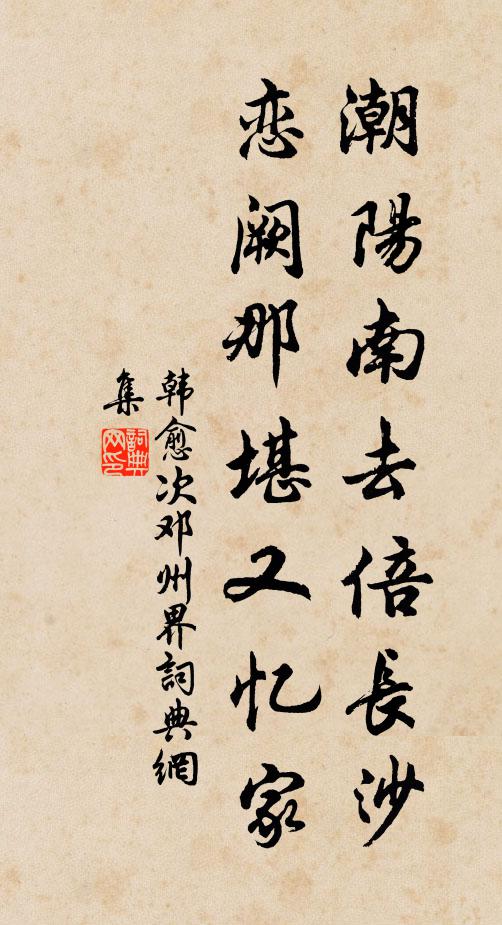 潮陽南去倍長沙
恋阙那堪又忆家
韩愈次邓州界詞典網
集
詞典网印